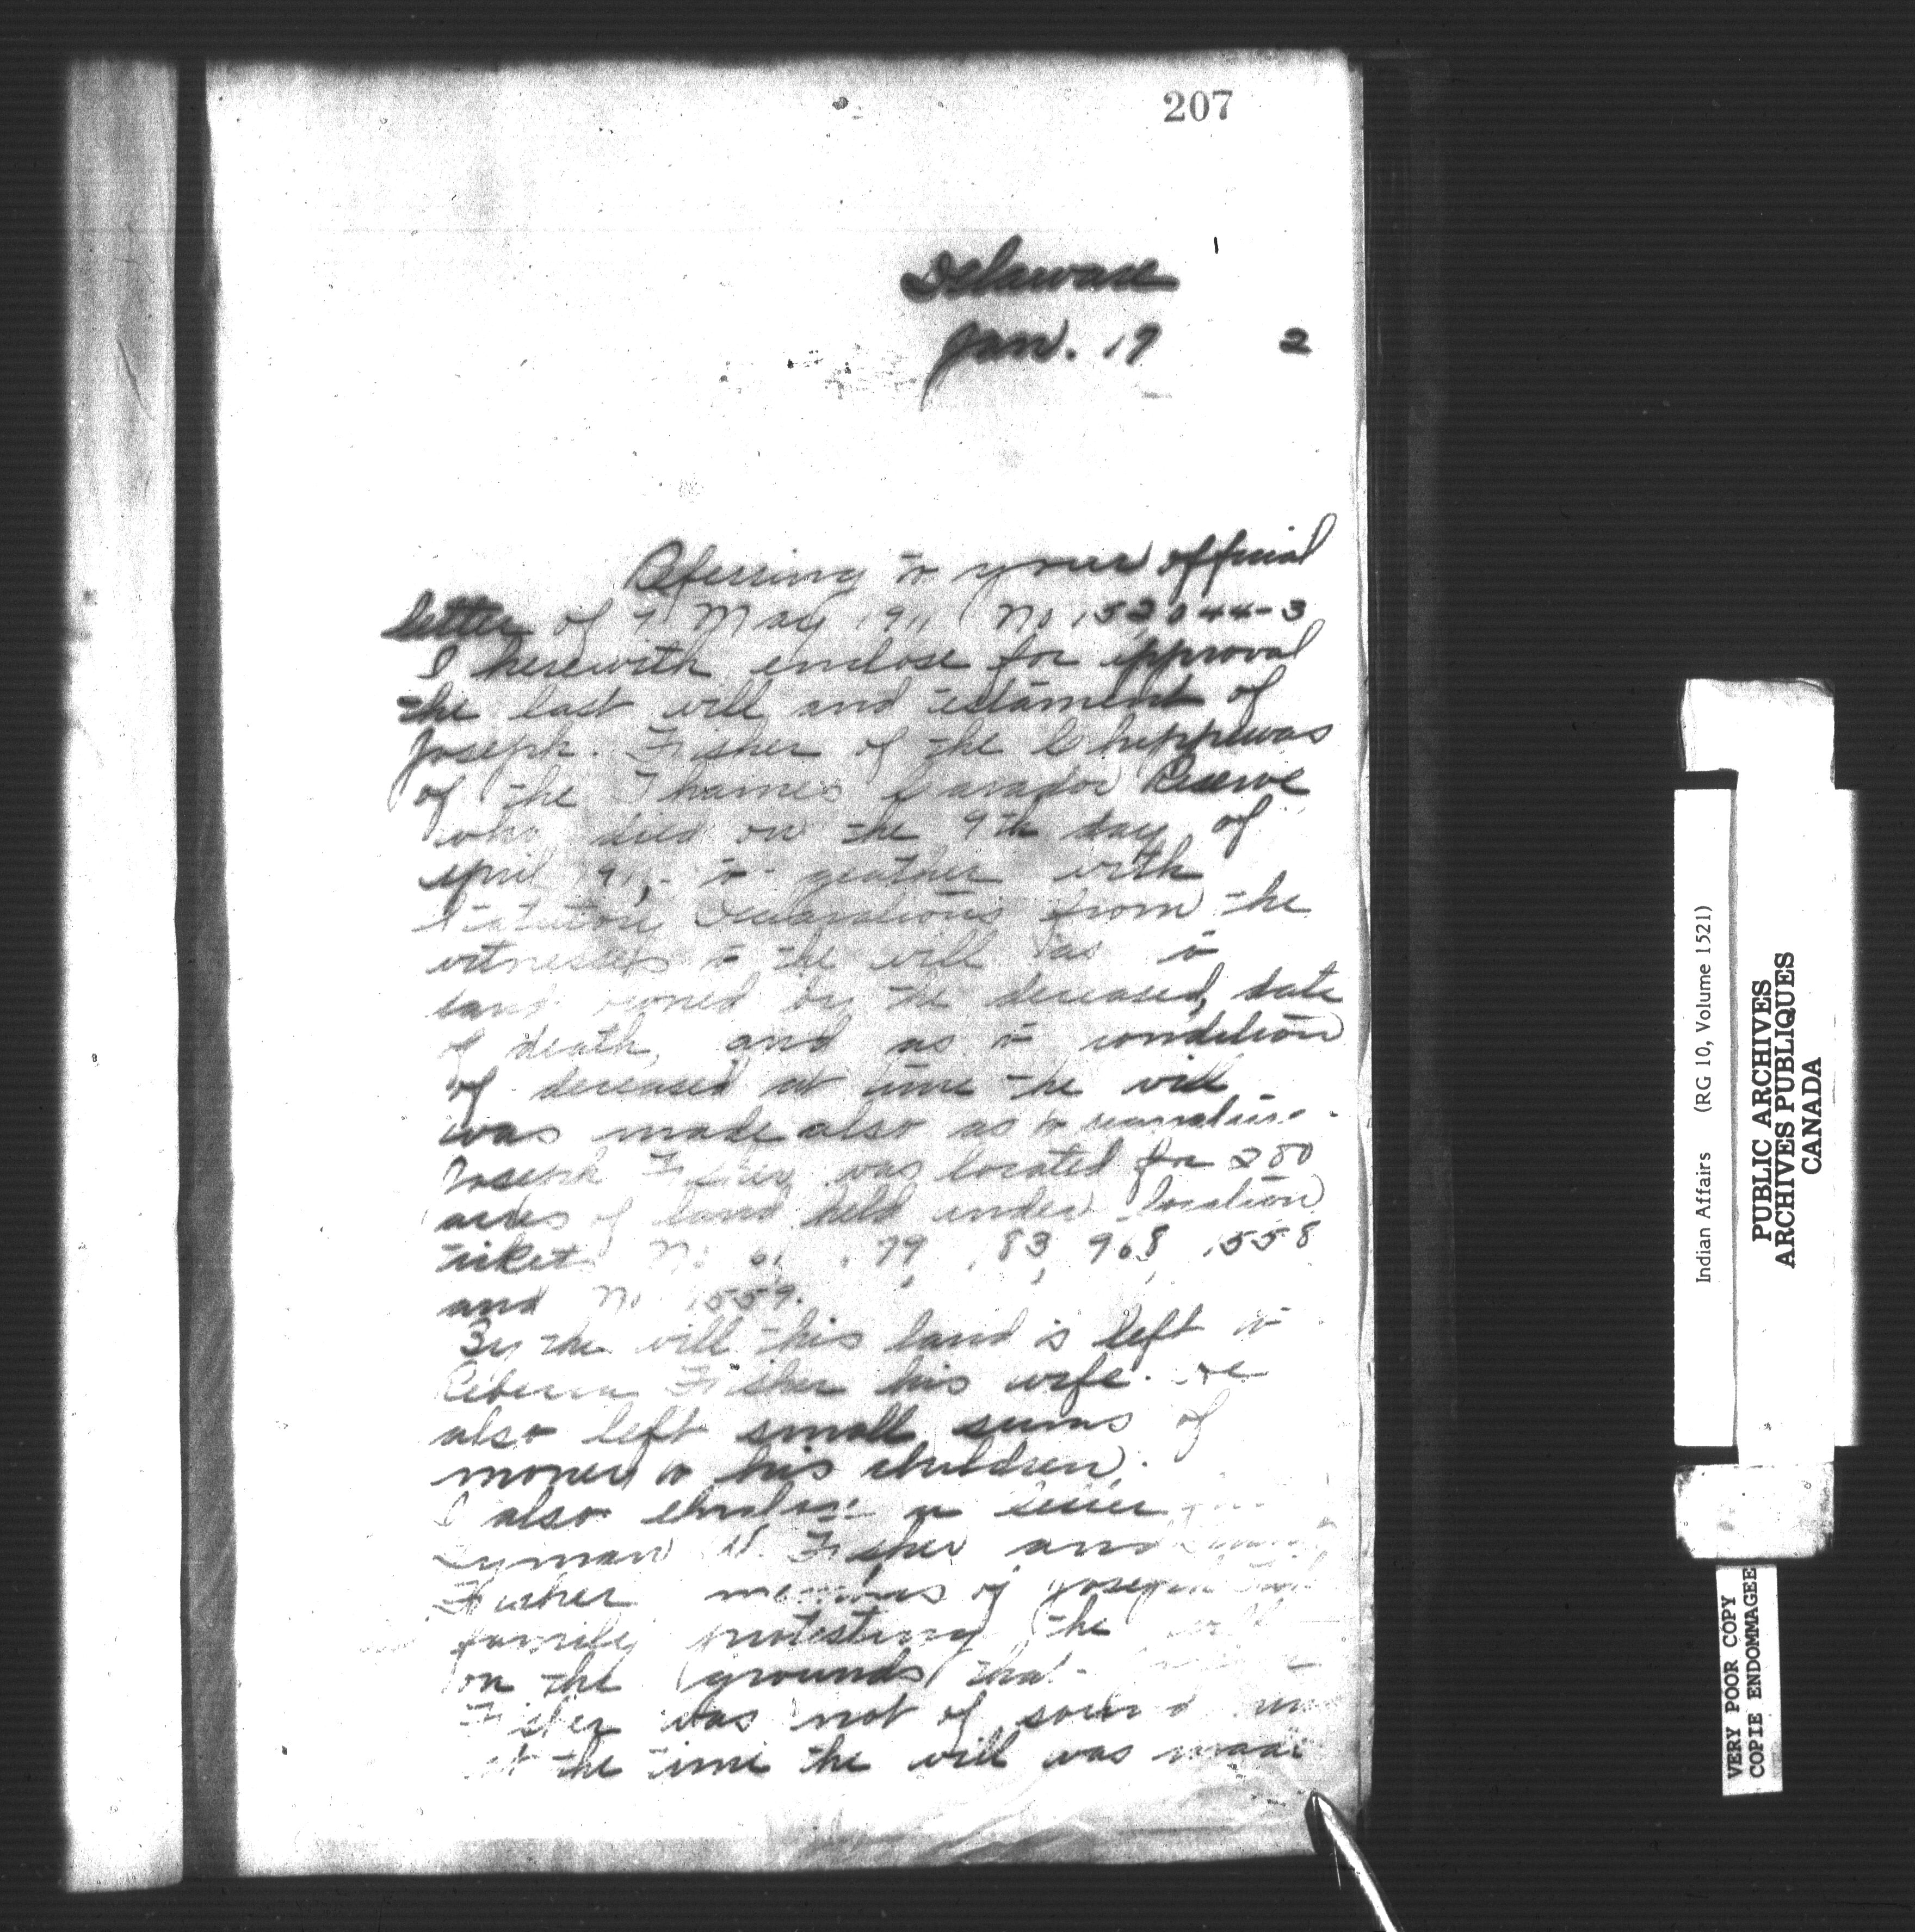 207
Delaware
Jan. 19 2
Referring to your official
letter of 9 May 1911 No 152,044-3
I herewith enclose for approval
the last will and testament of
Joseph Fisher of the Chippewas
of the Thames Caradoc Reserve
who died on the 9th day of
April 1911, to geather with
Statutory Declarations from the
witnesses to the will as to
land owned by the deceased, date
of death, and as to condition
of deceased at time the will
was made also as to
Joseph Fisher was located for 200
acres of land held under location
ticket No 61 79 83 968 1558
and No 1559.
By the will this land is left to
Rebecca Fisher his wife. He
also left small sums of
money to his children.
I also enclose a letter
Lyman Fisher and
Fisher members of Joseph
family protesting the will
on the grounds that
Fisher was not of sound
at the time the will was made
Indian Affairs (RG 10, Volume 1521)
PUBLIC ARCHIVES
ARCHIVES PUBLIQUES
CANADA
VERY POOR COPY
COPIE ENDOMMAGEE